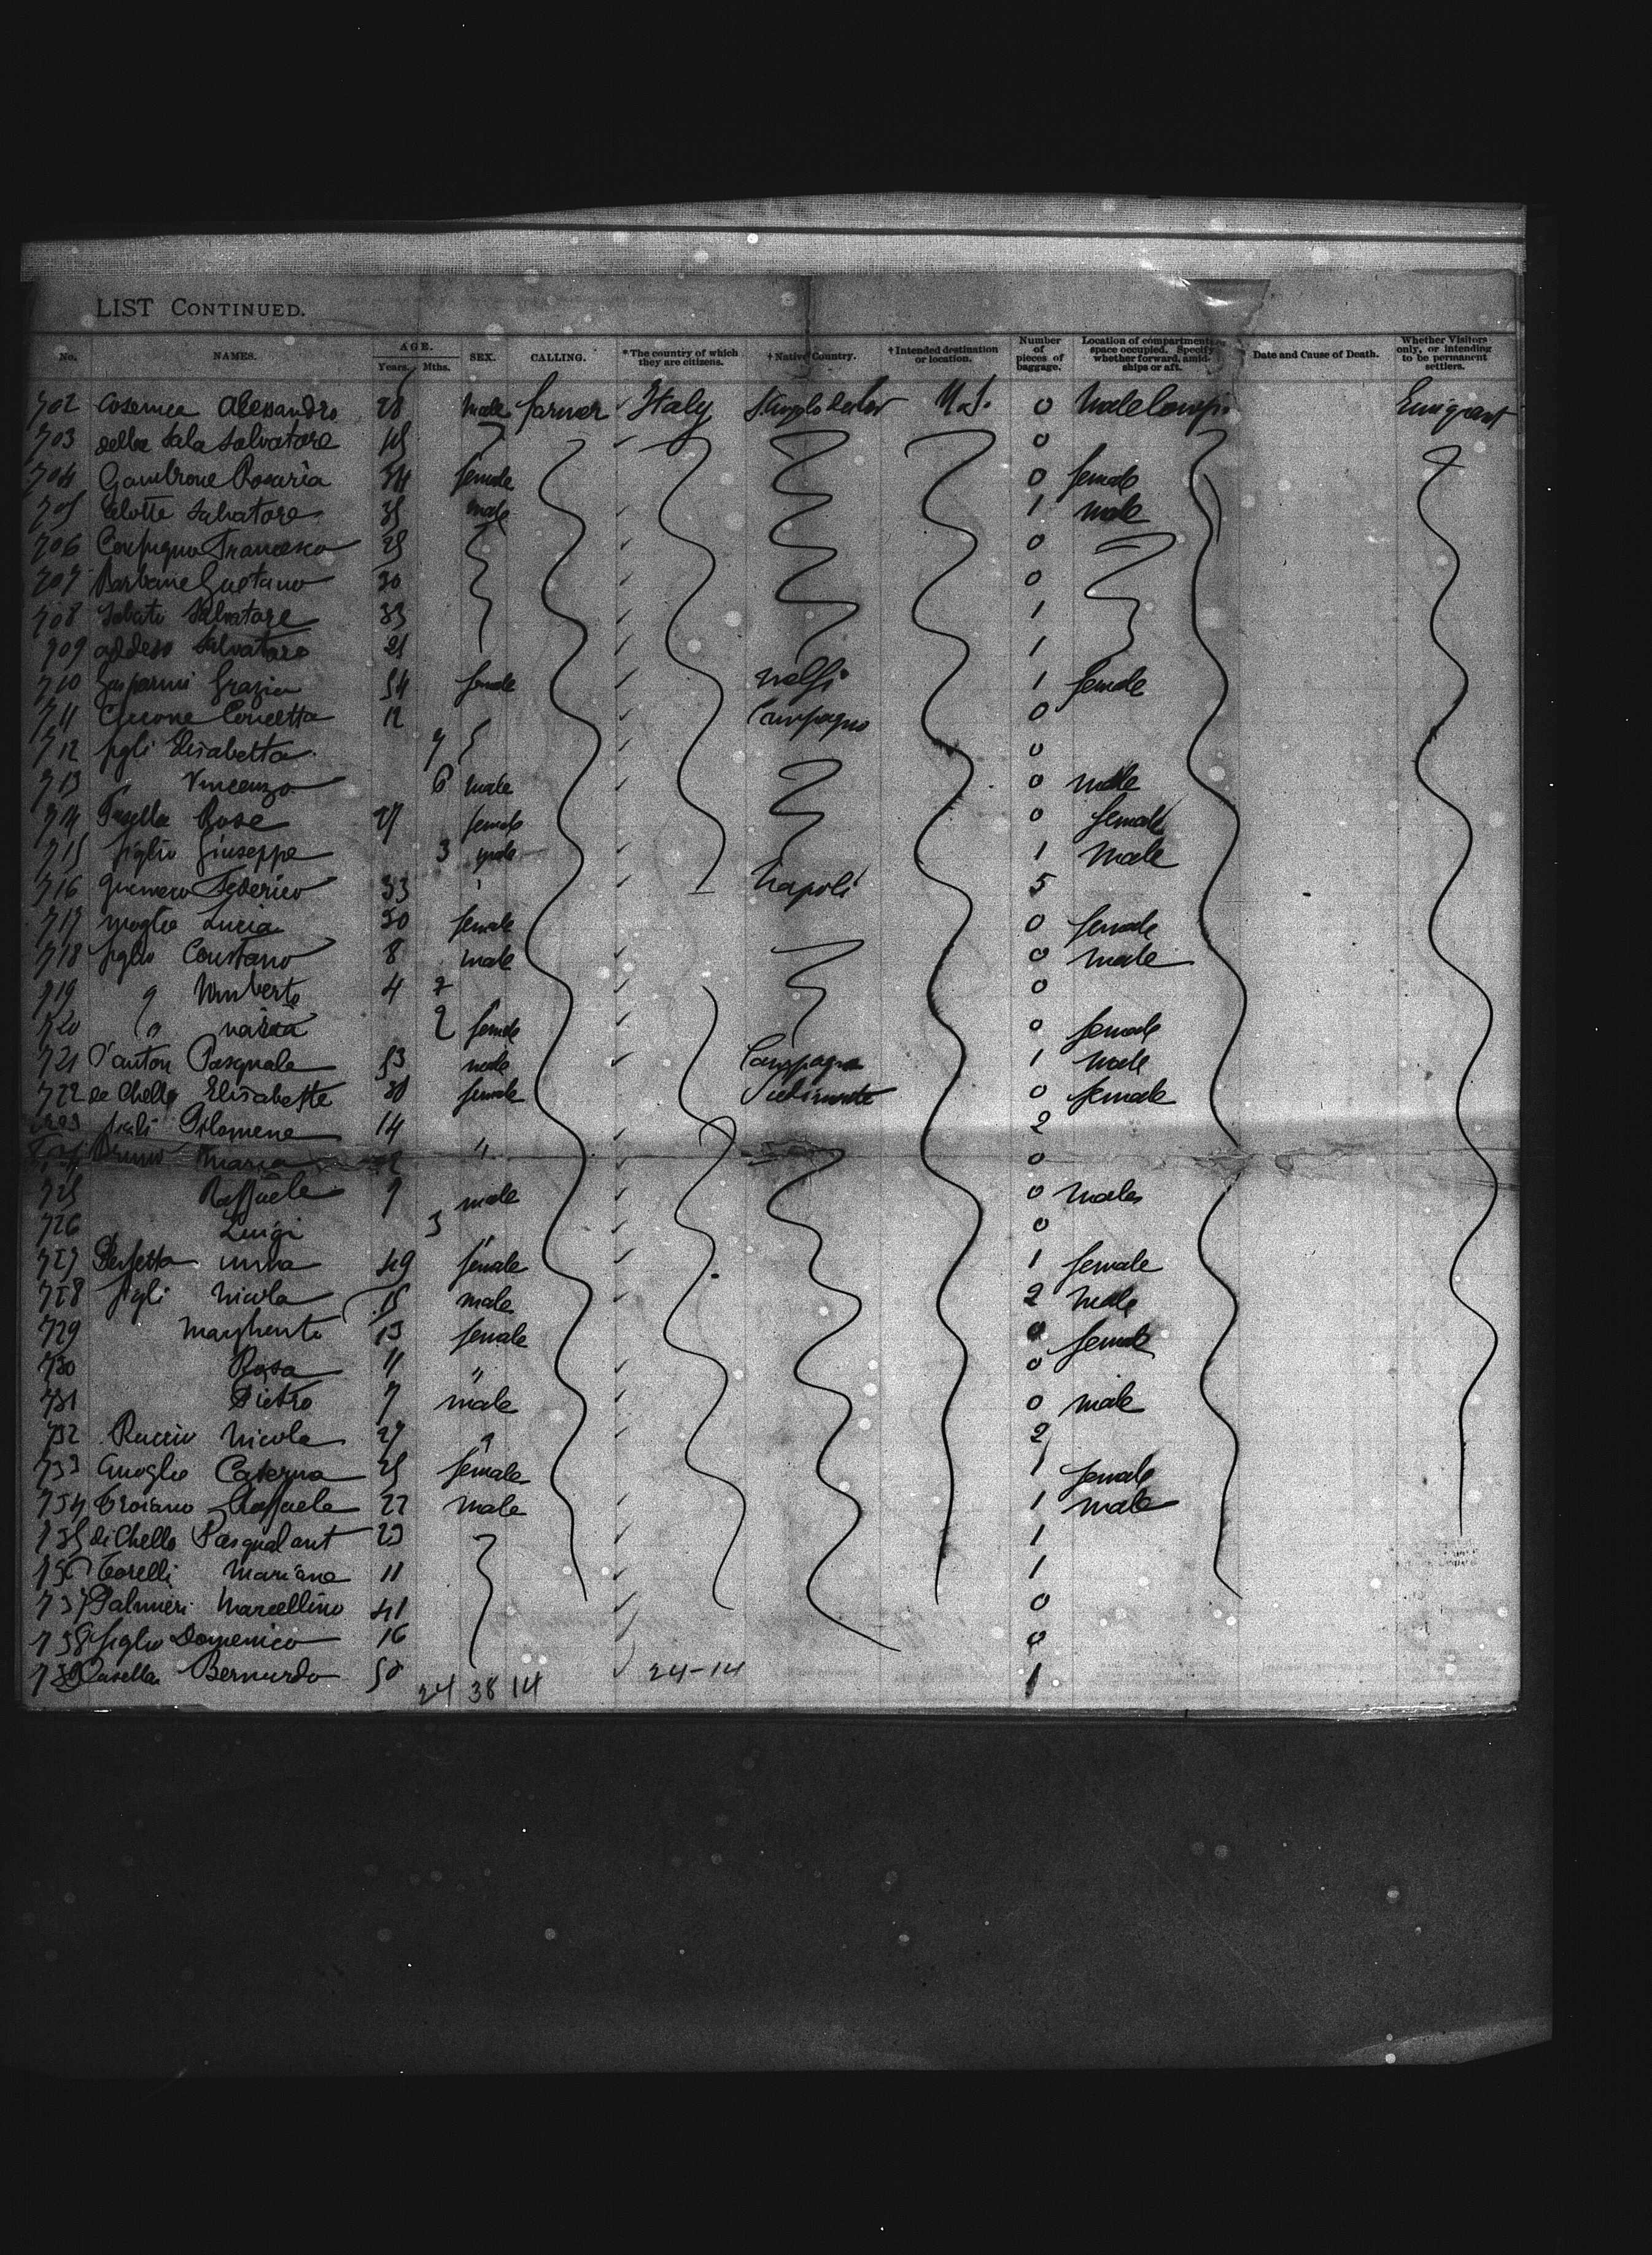 LIST CONTINUED.
No. NAMES. AGE. Years. Mths. SEX. CALLING. *The country of which they are citizens. †Native Country. †Intended destination or location. Number of pieces of baggage. Location of compartments space occupied. Specify whether forward, amidships or aft. Date and Cause of Death. Whether Visitors only, or intending to be permanent settlers.
702 Alessandro 28 male farmer Italy U.S. 0 Male Emigrant
703 della Sala Salvatore 0
704 Gambrone Rosaria 34 female 0 female
705 Salvatore 35 male 1 male
706 Francesco 0
707 Barbane Gaetano 30 0
708 Sabato Salvatore 33 1
709 addeso Salvatore 21 1
710 Gasparini Grazia 54 female 1 female
711 Concetta 12 Campagna 0
712 figli Elisabetta 0
713 Vincenzo 6 male 0 male
714 Rosa 27 female 0 female
715 figlio Giuseppe 3 male 1 Male
716 Federico 33 Napoli 5
717 moglie Lucia 30 female 0 female
718 figlio 8 male 0 male
719 Umberto 4 2 0
720 maria 2 female 0 female
721 Pasquale 53 male Campagna 1 Male
722 de Chello Elisabetta 38 female 0 female
figli Filomena 14 2
Bruno Maria " 0
725 Raffaele 9 male 0 males
726 Luigi 3 0
727 Perfetta 49 female 1 female
728 figli Nicola 15 male 2 Male
729 Margherita 13 female 0 female
730 Rosa 11 " 0
731 Pietro 7 male 0 male
732 Ruccio Nicola 27 2
733 moglie Caterina 25 female 1 female
734 Troiano Raffaele 22 male 1 male
735 di Chello Pasqual ant 23 1
736 Torelli Mariano 11 1
737 Palmieri Marcellino 41 0
738 figlio Domenico 16 0
739 Casella Bernardo 50 1
24 38 14 24-14